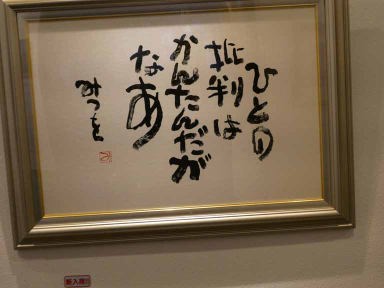 ひとの
批判は
かんたんだが
なあ
みつを
新入荷